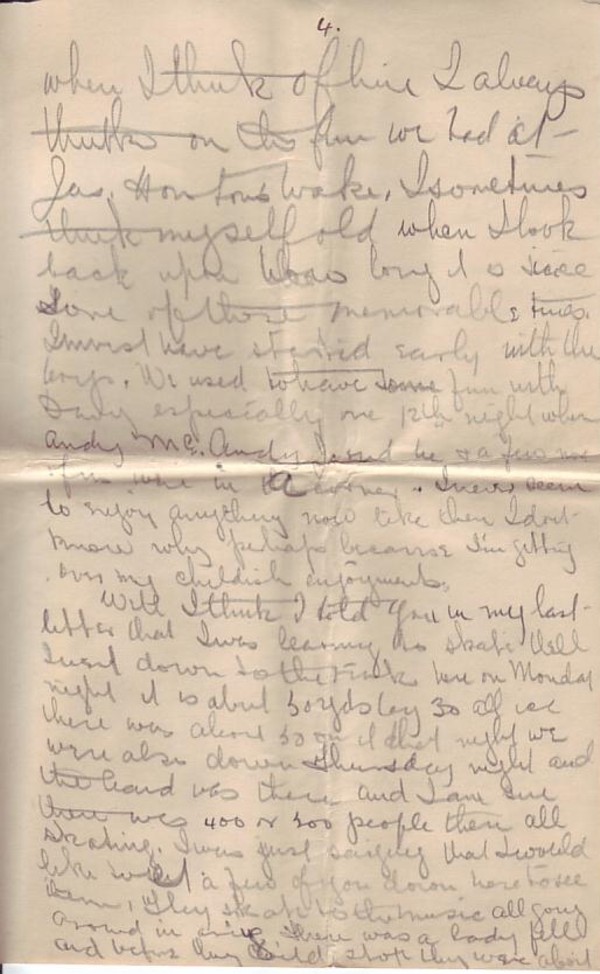 4.
when I think of him I always
thinks on the fun we had at
Jas. Houston's Wake, I sometimes
think myself old when I look
back upon how long it is since
some of those memorable times.
I must have started early with the
boys. We used to have some fun with
especially one 12th night when
Andy Mc. Andy he & a few
of us were in a corner. I never seem
to enjoy anything now like then I dont
know why perhaps because I'm getting
over my childish enjoyments.
Well I think I told you in my last
letter that I was learning to skate Well
I went down to the rink here on Monday
night it is about 50 yds by 30 all ice
there was about 50 on it that night we
were also down Thursday night and
the band was there and I am sure
there was 400 or 500 people there all
skating. I was just saying that I would
like a few of you down here to see
them, They skate to the music all going
around in a ring there was a lady fell
and before they could stop they were about